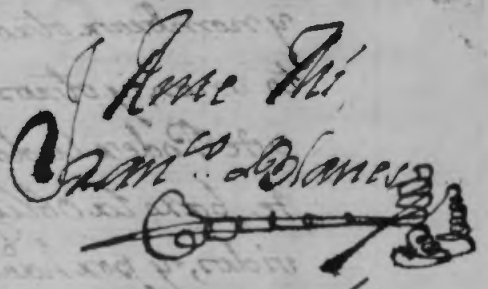 Ante Mí
Franco Blanes